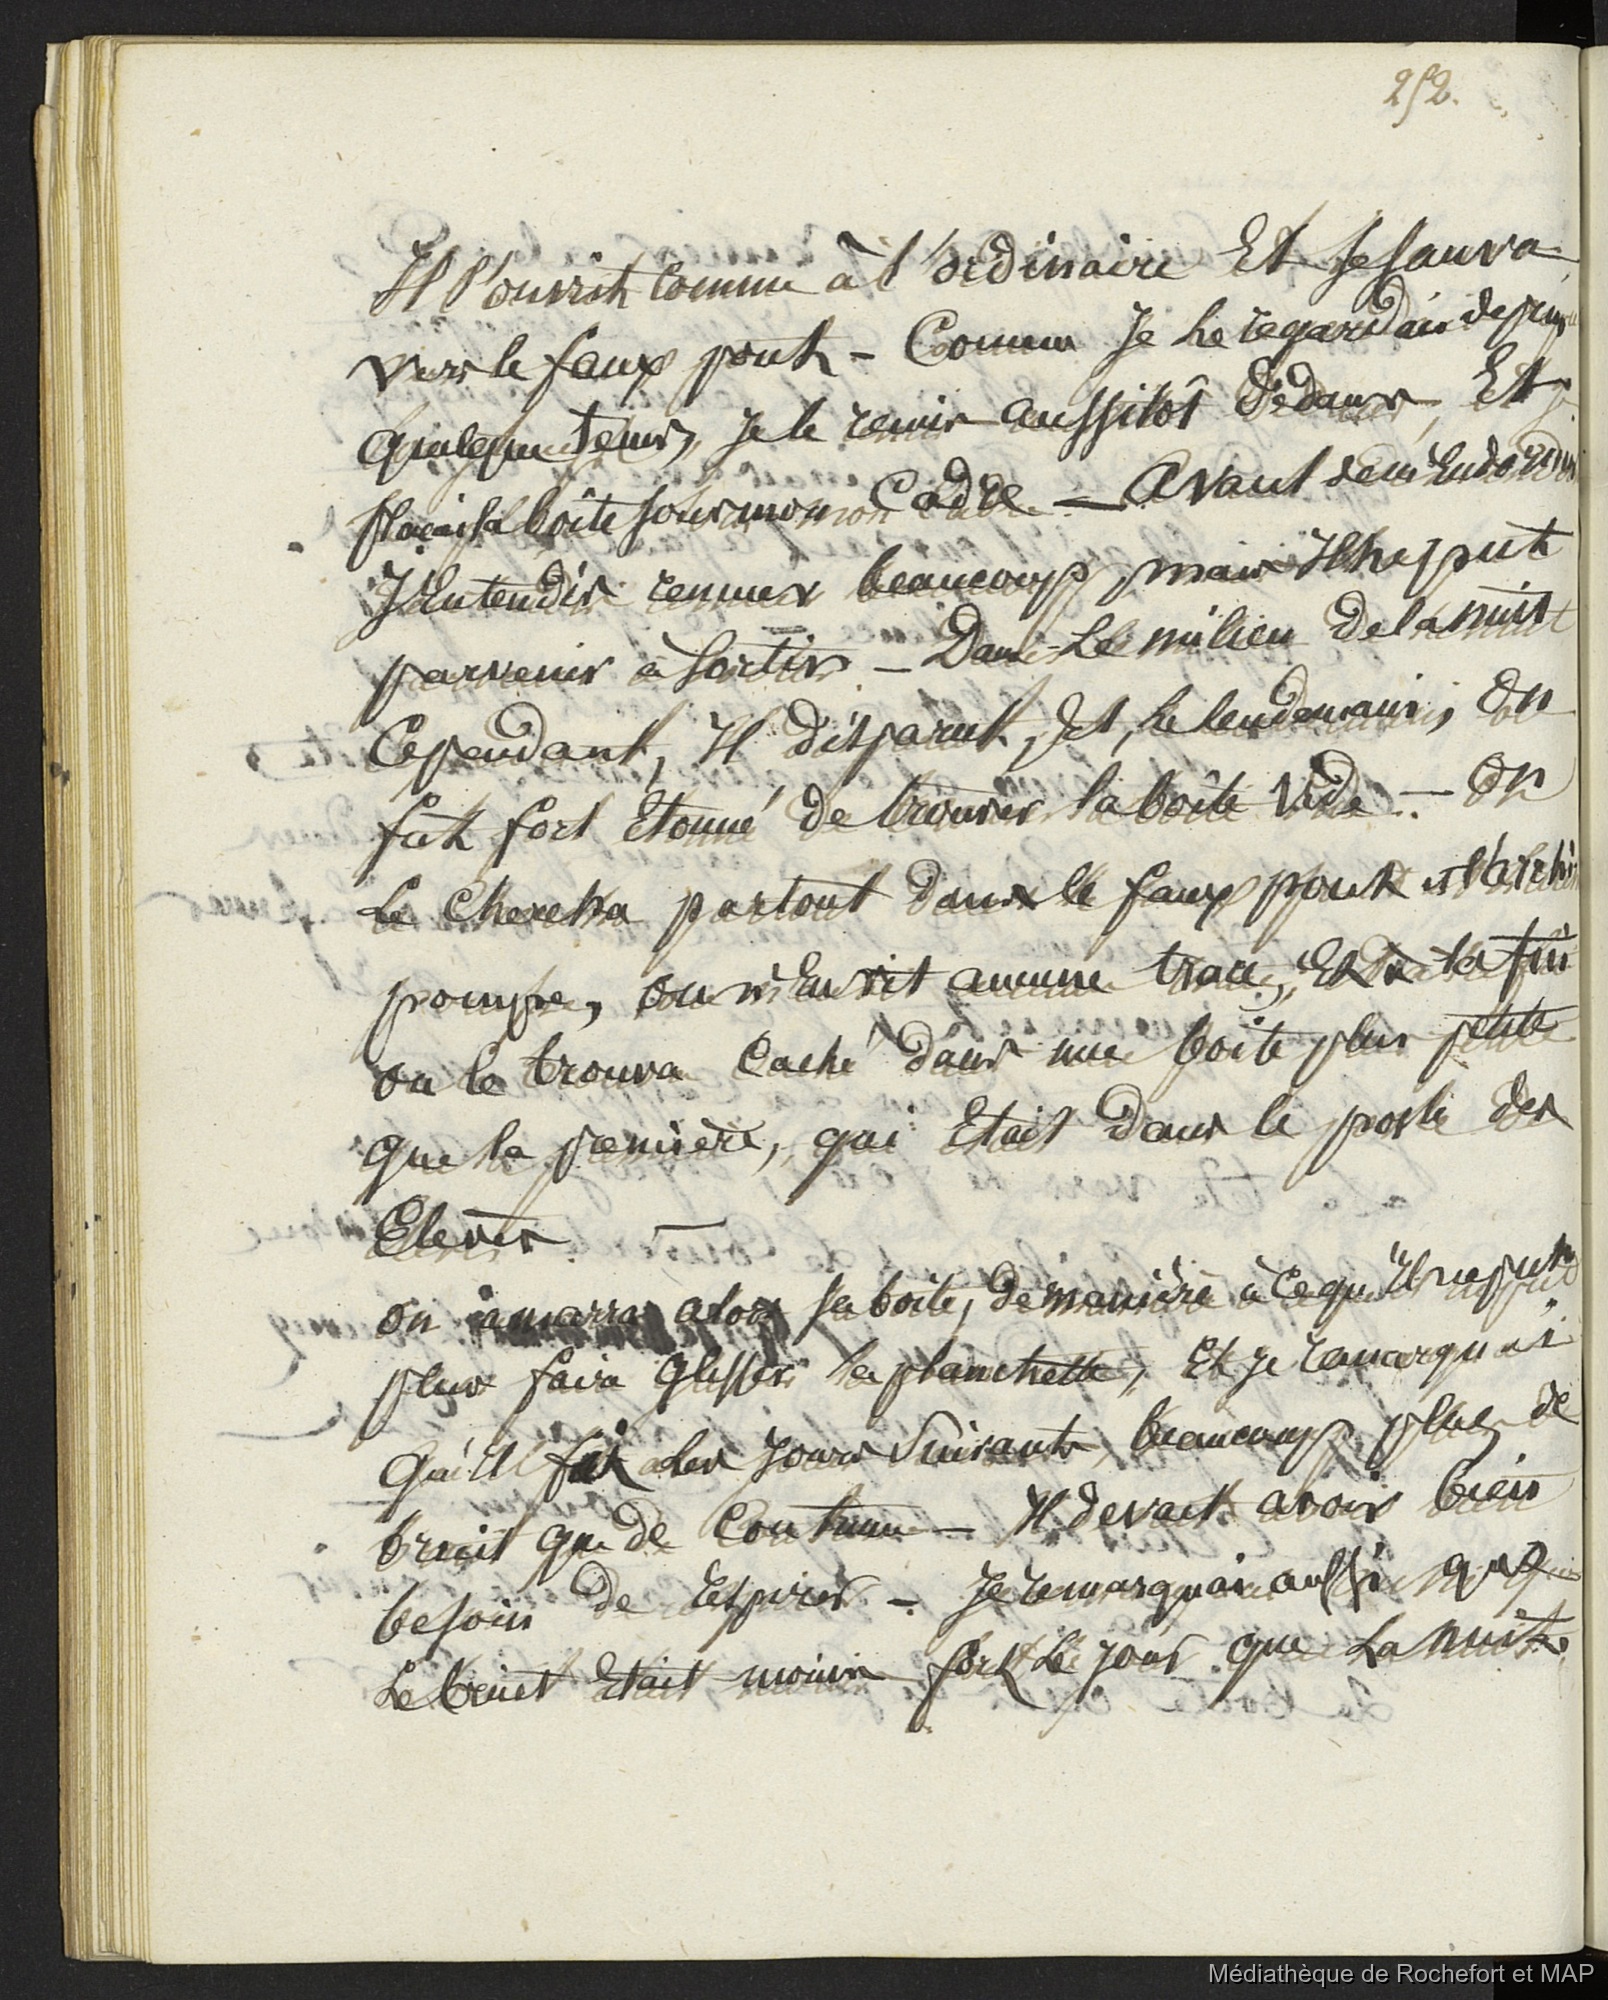 252.
Il l'ouvrit comme à l'ordinaire Et se sauva
vers le faux pont - Comme Je le regardais depuis
quelque tems, Je le remis aussitôt dedans, Et
plaçai sa boîte sous mon Cadre - Avant de m'Endormir
J'Entendis remuer beaucoup, mais Il ne put
parvenir à sortir - Dans Le milieu De la nuit
Cependant, Il disparut, Et, le lendemain, On
fut fort Etonné de trouver la boîte Vide - On
le chercha partout dans le faux pont et l'archi
pompe, on n'En vit aucune trace, Et à la fin
on le trouva Caché dans une boîte plus petite
que la première, qui Etait dans le poste des
Elèves. —
On amarra alors sa boîte, de manière à ce qu'Il ne put
plus faire glisser la planchette, Et Je remarquai
qu'Il fit les jours Suivants, beaucoup plus de
bruit que de Coutume - Il devait avoir bien
besoin de respirer - Je remarquai aussi que
Le bruit Etait moins fort Le jour que La nuit.
Médiathèque de Rochefort et MAP